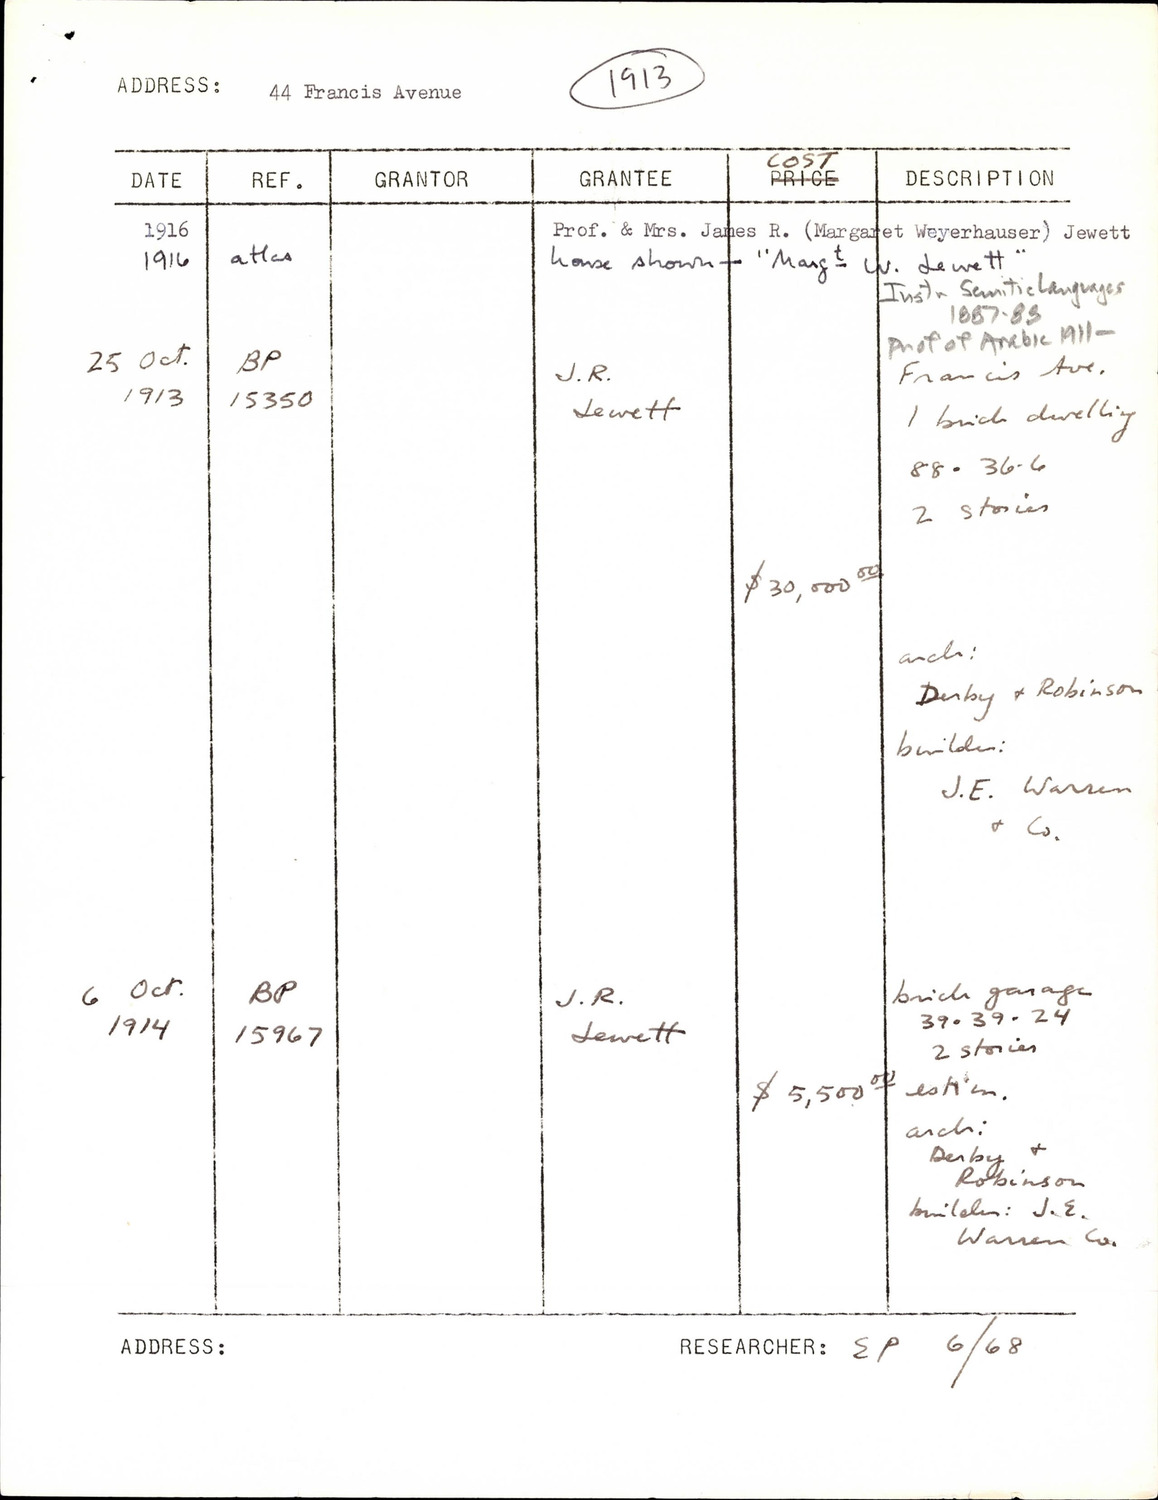 ADDRESS: 44 Francis Avenue 1913
COST
DATE REF. GRANTOR GRANTEE PRICE DESCRIPTION
1916 Prof. & Mrs. James R. (Margaret Weyerhauser) Jewett
1916 atlas house shown — "Margt W. Jewett"
Instr Semitic Languages
1887-88
Prof of Arabic 1911—
25 Oct. BP J.R. Francis Ave.
1913 15350 Jewett 1 brick dwelling
88 · 36-6
2 stories
$30,000 00
arch:
Derby + Robinson
builder:
J.E. Warren
+ Co.
6 Oct. BP J.R. brick garage
1914 15967 Jewett 39 · 39 · 24
2 stories
$ 5,500 00 estim.
arch:
Derby +
Robinson
builder: J.E.
Warren Co.
ADDRESS: RESEARCHER: EP 6/68